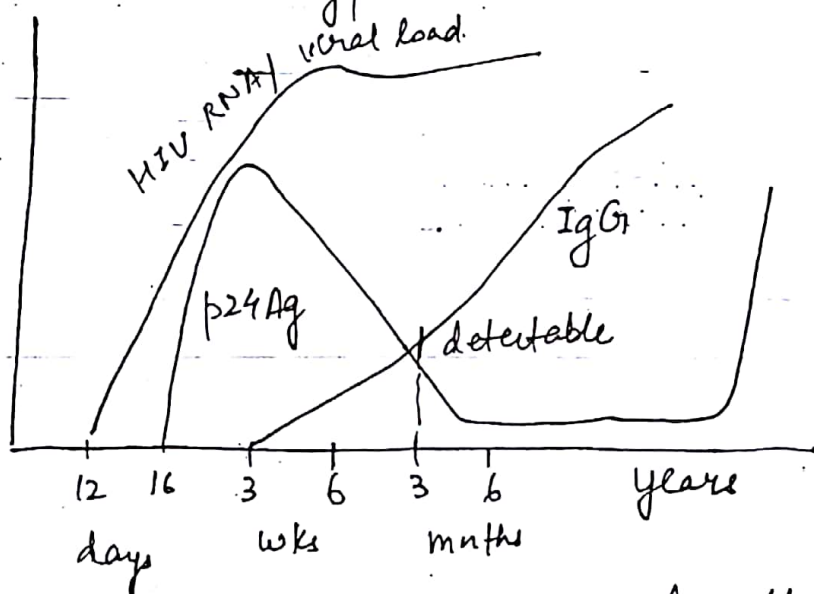 HIV RNA/ viral load.
p24Ag
IgG
detectable
12 16 3 6 3 6 years
days wks mnths